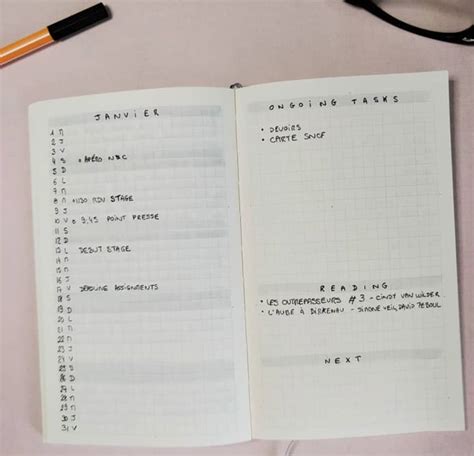 JANVIER
1 M
2 J
3 V
4 S o APÉRO NBC
5 D
6 L
7 M
8 M o 1130 RDV STAGE
9 J
10 V o 9:45 POINT PRESSE
11 S
12 D
13 L DEBUT STAGE
14 M
15 M
16 J
17 V DEADLINE ASSIGNMENTS
18 S
19 D
20 L
21 M
22 M
23 J
24 V
25 S
26 D
27 L
28 M
29 M
30 J
31 V
ONGOING TASKS
• DEVOIRS
• CARTE SNCF
READING
• LES OUTREPASSEURS #3 - CINDY VAN WILDER
• L'AUBE À BIRKENAU - SIMONE VEIL, DAVID TEBOUL
NEXT